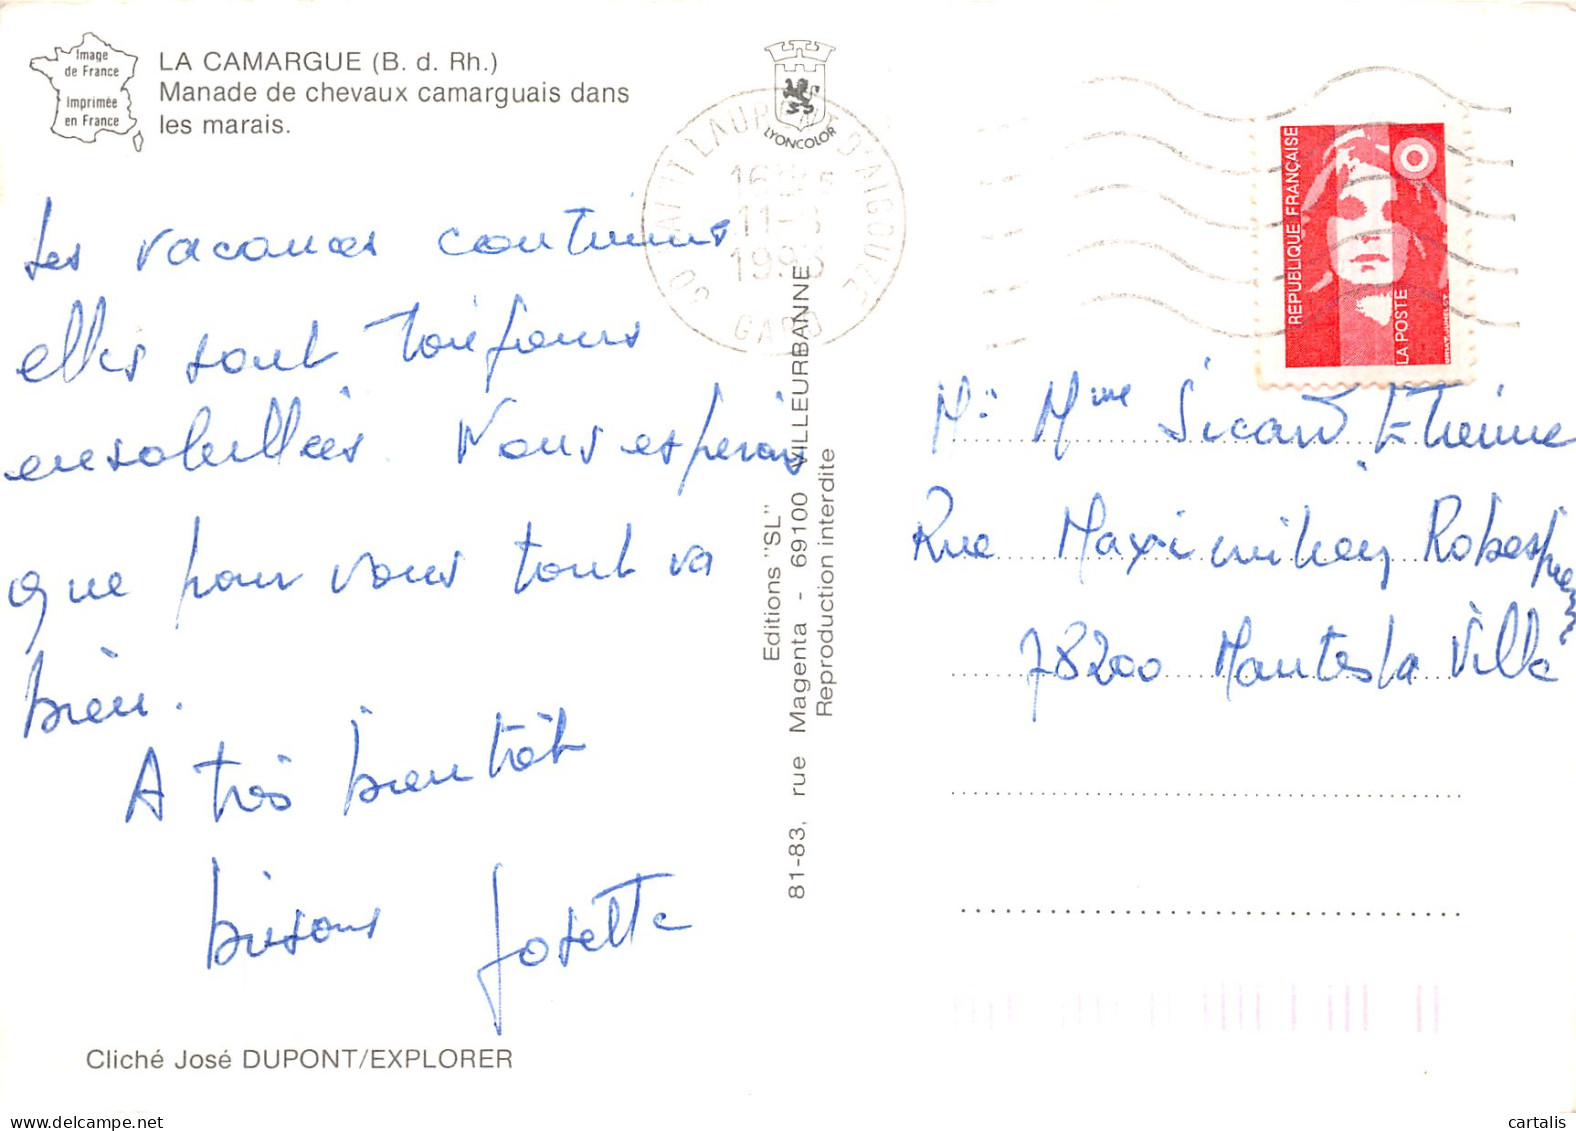 Image
de France
Imprimée
en France
LA CAMARGUE (B. d. Rh.)
Manade de chevaux camarguais dans
les marais.
LYONCOLOR
30 SAINT LAURENT D'AIGOUZE
11-8
GARD
REPUBLIQUE FRANÇAISE
LA POSTE
Les vacances continues
elles sont toujours
ensoleillées. Nous espérons
que pour vous tout va
bien.
A très bientôt
bisous Josette
Editions "SL"
81-83, rue Magenta - 69100 VILLEURBANNE
Reproduction interdite
Mr Mme Sicard Etienne
Rue Maximilien Robespierre
78200 Mantes la Ville
Cliché José DUPONT/EXPLORER
cartalis